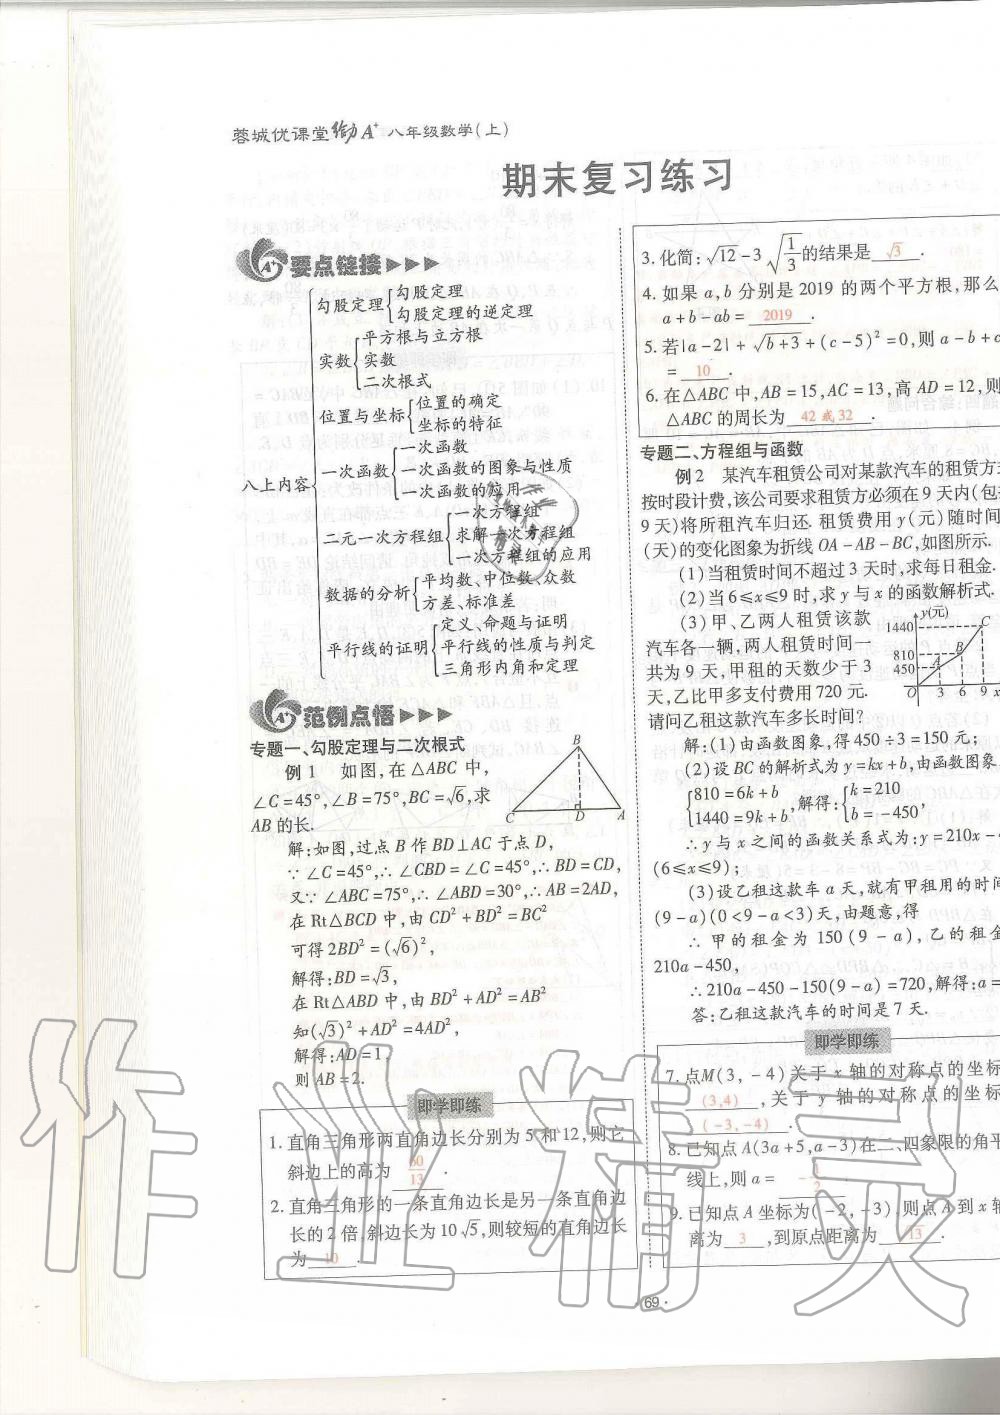 蓉城优课堂 给力A⁺ 八年级数学(上)
期末复习练习
A⁺ 要点链接
八上内容
勾股定理
勾股定理
勾股定理的逆定理
实数
平方根与立方根
实数
二次根式
位置与坐标
位置的确定
坐标的特征
一次函数
一次函数
一次函数的图象与性质
一次函数的应用
二元一次方程组
一次方程组
求解一次方程组
一次方程组的应用
数据的分析
平均数、中位数、众数
方差、标准差
平行线的证明
定义、命题与证明
平行线的性质与判定
三角形内角和定理
A⁺ 范例点悟
专题一、勾股定理与二次根式
例1 如图,在△ABC中,
∠C=45°,∠B=75°,BC=√6,求
AB的长.
B
C D A
解:如图,过点B作BD⊥AC于点D,
∵∠C=45°,∴∠CBD=∠C=45°,∴BD=CD,
又∵∠ABC=75°,∴∠ABD=30°,∴AB=2AD,
在Rt△BCD中,由CD²+BD²=BC²
可得2BD²=(√6)²,
解得:BD=√3,
在Rt△ABD中,由BD²+AD²=AB²
知(√3)²+AD²=4AD²,
解得:AD=1.
则AB=2.
即学即练
1.直角三角形两直角边长分别为5和12,则它
斜边上的高为 60/13 .
2.直角三角形的一条直角边长是另一条直角边
长的2倍,斜边长为10√5,则较短的直角边长
为 10 .
3.化简:√12-3√(1/3)的结果是 √3 .
4.如果a,b分别是2019的两个平方根,那么
a+b-ab= 2019 .
5.若|a-2|+√(b+3)+(c-5)²=0,则a-b+c
= 10 .
6.在△ABC中,AB=15,AC=13,高AD=12,则
△ABC的周长为 42或32 .
专题二、方程组与函数
例2 某汽车租赁公司对某款汽车的租赁方式
按时段计费,该公司要求租赁方必须在9天内(包括
9天)将所租汽车归还.租赁费用y(元)随时间
(天)的变化图象为折线OA-AB-BC,如图所示.
(1)当租赁时间不超过3天时,求每日租金.
(2)当6≤x≤9时,求y与x的函数解析式.
(3)甲、乙两人租赁该款
汽车各一辆,两人租赁时间一
共为9天,甲租的天数少于3
天,乙比甲多支付费用720元.
请问乙租这款汽车多长时间?
y(元)
1440 C
810 B
450 A
O 3 6 9 x
解:(1)由函数图象,得450÷3=150元;
(2)设BC的解析式为y=kx+b,由函数图象,
{810=6k+b 1440=9k+b,解得:{k=210 b=-450,
∴y与x之间的函数关系式为:y=210x-
(6≤x≤9);
(3)设乙租这款车a天,就有甲租用的时间
(9-a)(0<9-a<3)天,由题意,得
∴甲的租金为150(9-a),乙的租金
210a-450,
∴210a-450-150(9-a)=720,解得:a=
答:乙租这款汽车的时间是7天.
即学即练
7.点M(3,-4)关于x轴的对称点的坐标
(3,4) ,关于y轴的对称点的坐标
(-3,-4) .
8.已知点A(3a+5,a-3)在二、四象限的角平
线上,则a= -1/2 .
9.已知点A坐标为(-2,-3),则点A到x轴
离为 3 ,到原点距离为 √13 .
69
作业精灵